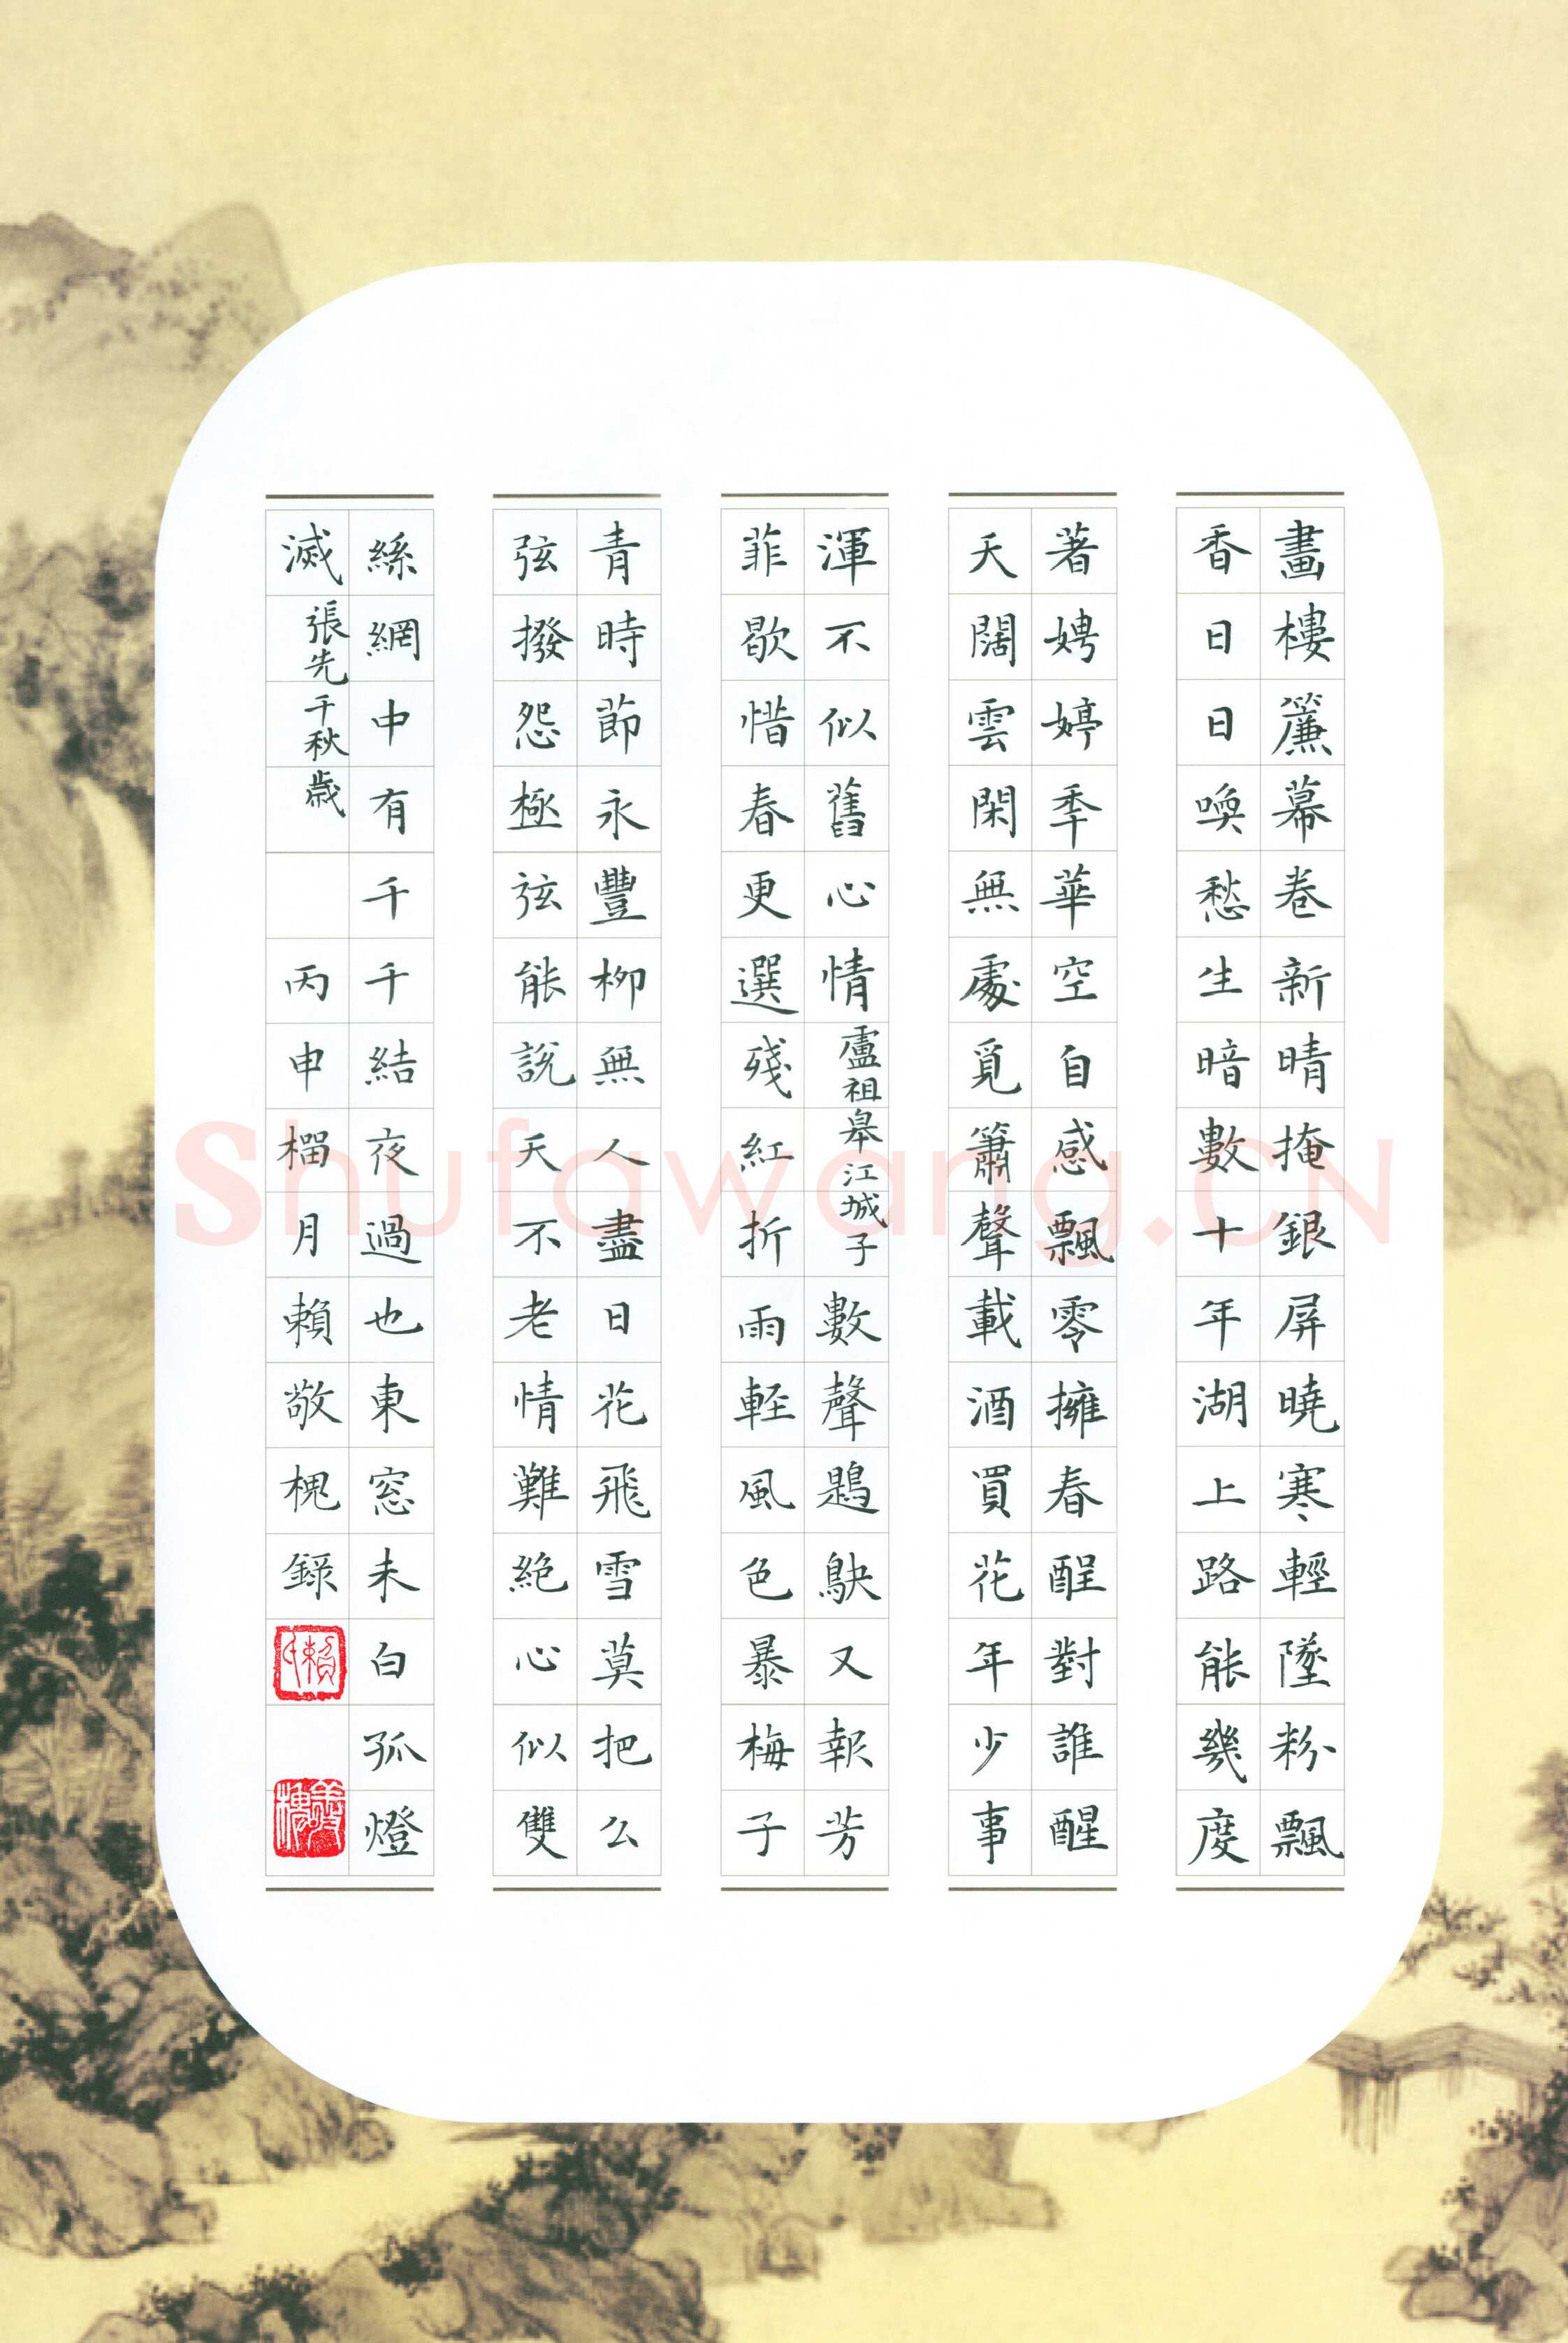 畫樓簾幕卷新晴掩銀屏曉寒輕墜粉飄
香日日喚愁生暗數十年湖上路能幾度
著娉婷年華空自感飄零擁春酲對誰醒
天闊雲閑無處覓簫聲載酒買花年少事
渾不似舊心情盧祖皋江城子數聲鶗鴃又報芳
菲歇惜春更選殘紅折雨軽風色暴梅子
青時節永豐柳無人盡日花飛雪莫把么
弦撥怨極弦能說天不老情難絕心似雙
絲網中有千千結夜過也東窓未白孤燈
滅張先千秋歲丙申榴月賴敬槐錄
Shufawang.CN